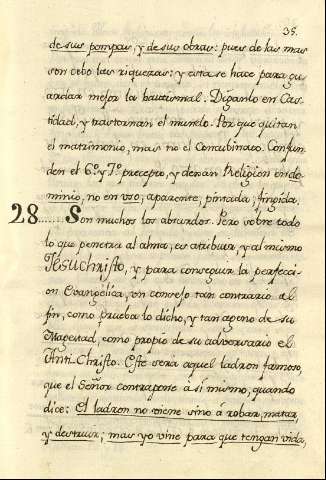 35.
de sus pompas, y de sus obras: pues de las mas
son cebo las riquezas: y esta se hace para gu
ardar mejor la bautismal. Diganlo en Cas
tidad, y trastornan el mundo. Porque quitan
el matrimonio, mas no el Concubinato. Confun
den el 6.º y 7.º precepto, y deman Religion en do
minio, no en uso; aparente, pintada, fingida.
28...... Son muchos los absurdos. Pero sobre todo
lo que penetra al alma, es atribuir, y al mismo
Jesuchristo, y para conseguir la perfecci
on Evangelica, un consejo tan contrario al
fin, como prueba lo dicho, y tan ageno de su
Magestad, como propio de su adversario el
Anti-Christo. Este sería aquel ladron famoso,
que el Señor contrapone á sí mismo, quando
dice: El ladron no viene sino a robar, matar,
y destruir; mas yo vine para que tengan vida,